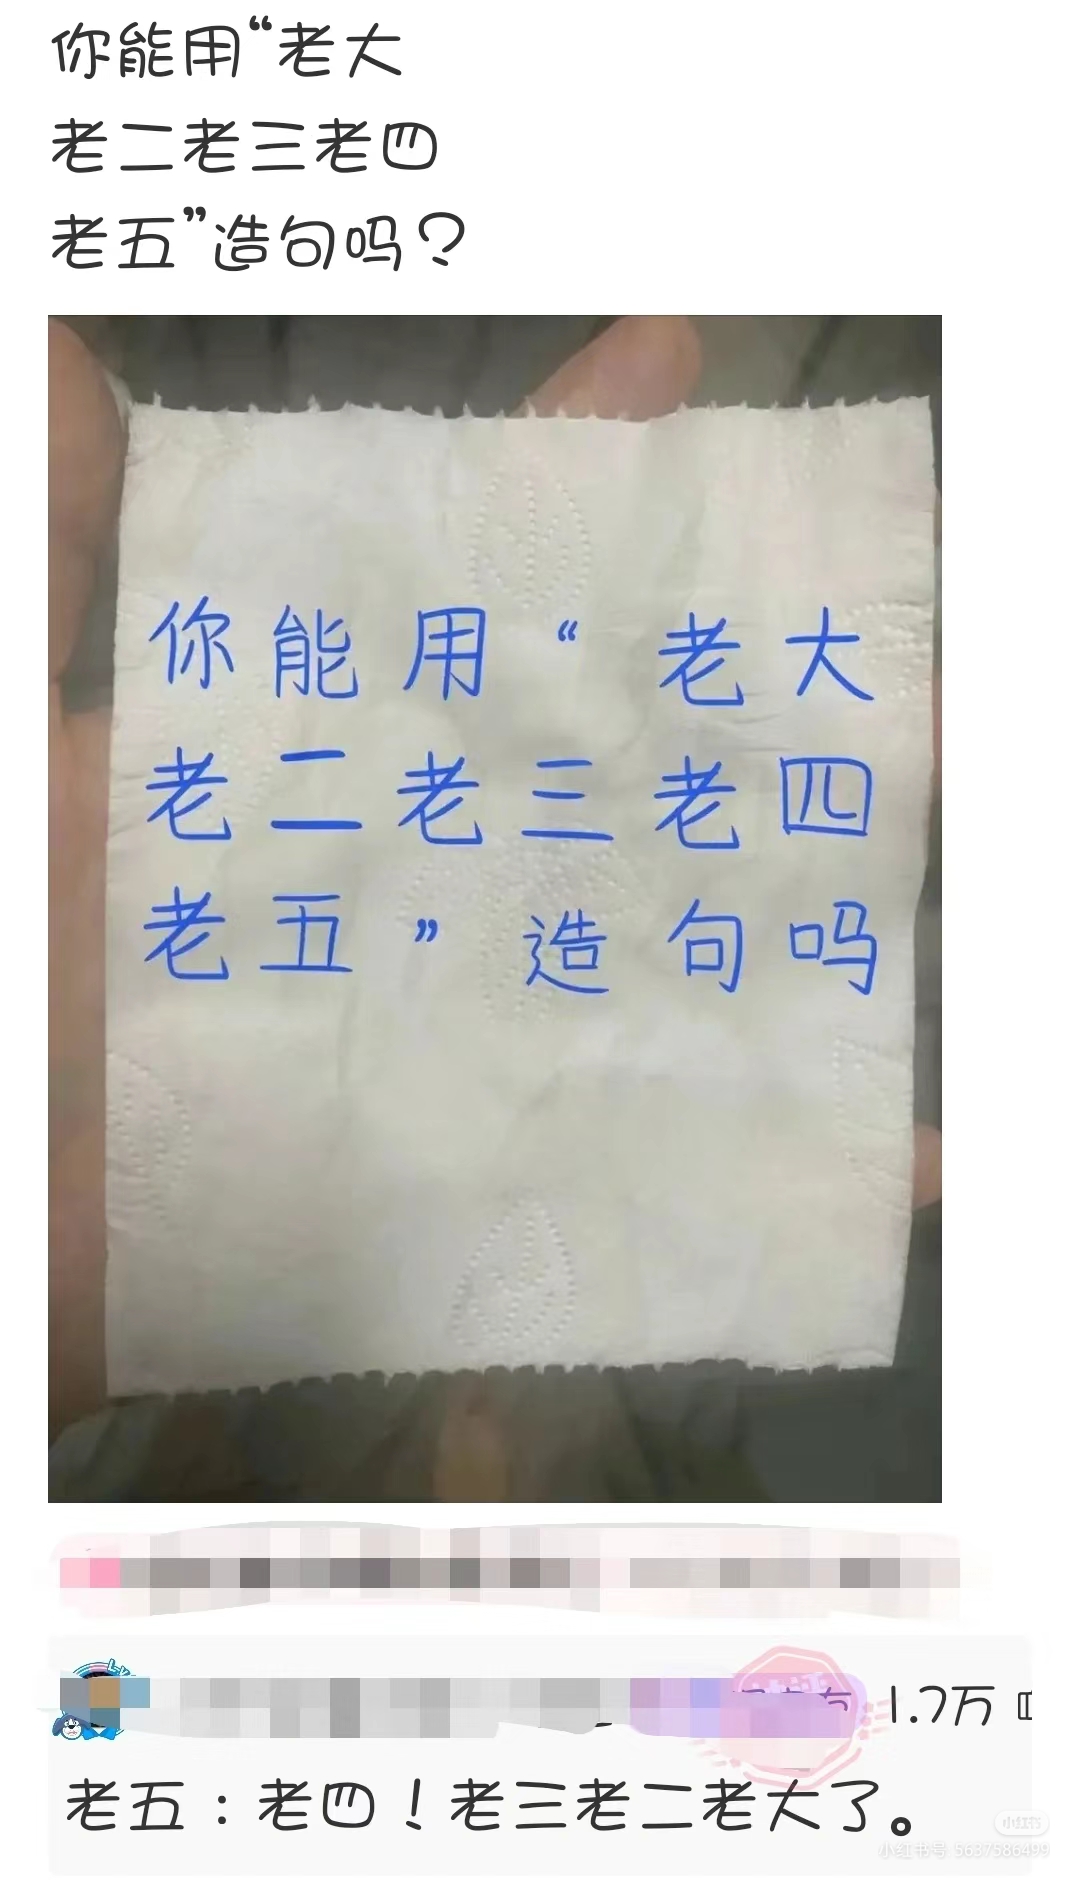 你能用“老大
老二老三老四
老五”造句吗？
你能用“老大
老二老三老四
老五”造句吗
1.7万
老五：老四！老三老二老大了。
小红书
小红书号 5637586499